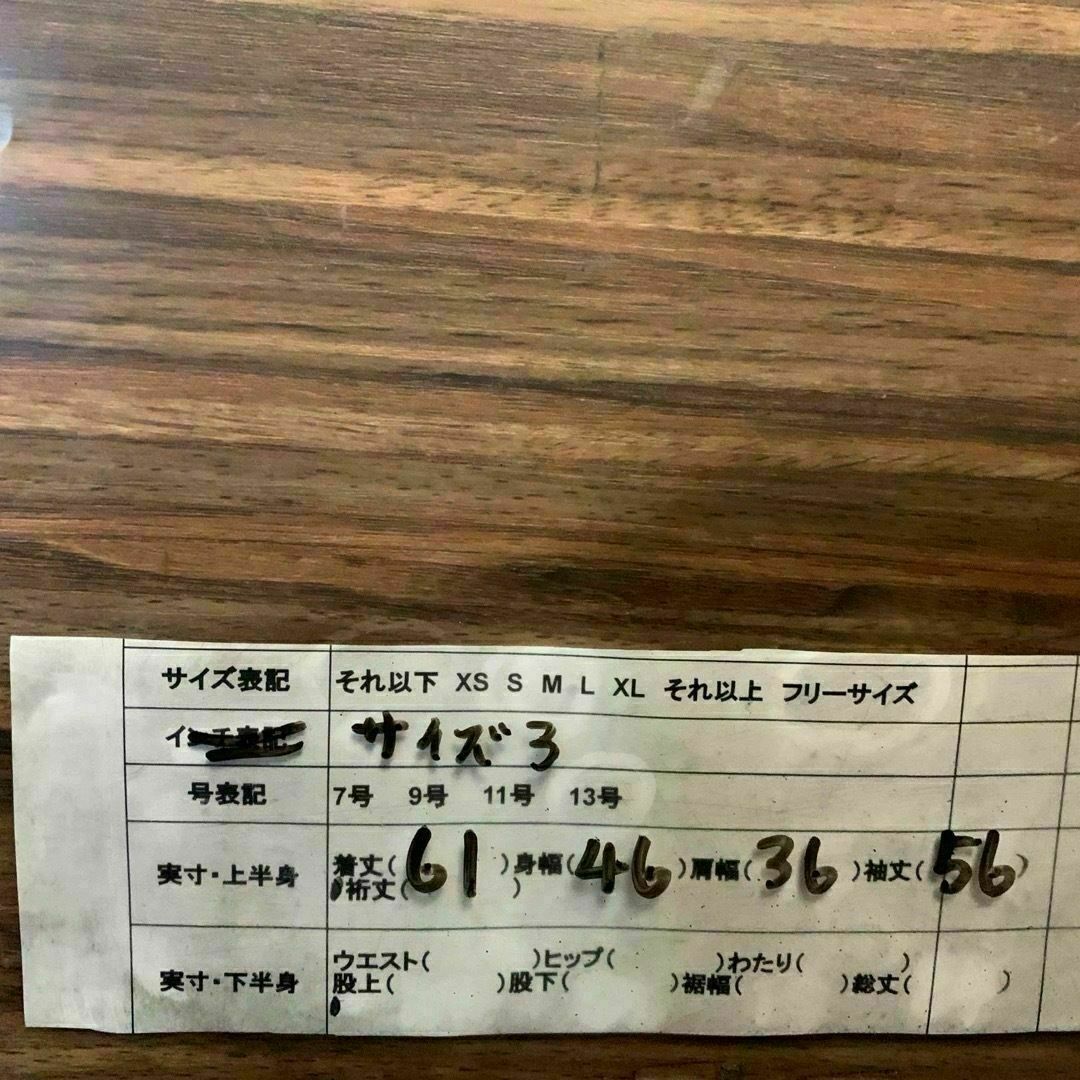 サイズ表記 それ以下 XS S M L XL それ以上 フリーサイズ
インチ表記 サイズ3
号表記 7号 9号 11号 13号
実寸・上半身 着丈(61)身幅(46)肩幅(36)袖丈(56)
裄丈( )
実寸・下半身 ウエスト( )ヒップ( )わたり( )
股上( )股下( )裾幅( )総丈( )